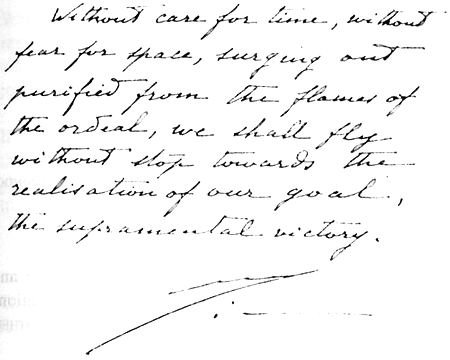 Without care for time, without
fear for space, surging out
purified from the flames of
the ordeal, we shall fly
without stop towards the
realisation of our goal,
the supramental victory.